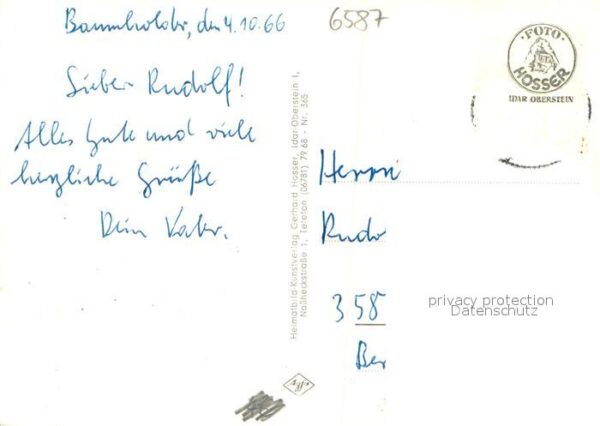 Baumholder, den 4.10.66
6587
Lieber Rudolf!
Alles Gute und viele
herzliche Grüße
Dein Vater.
Heimatbild-Kunstverlag Gerhard Hosser, Idar-Oberstein 1,
Naßheckstraße 1, Telefon (06781) 79 68 - Nr. 365
Agfa
· FOTO ·
HOSSER
IDAR OBERSTEIN
Herrn
Rudo
358
Ber
privacy protection
Datenschutz